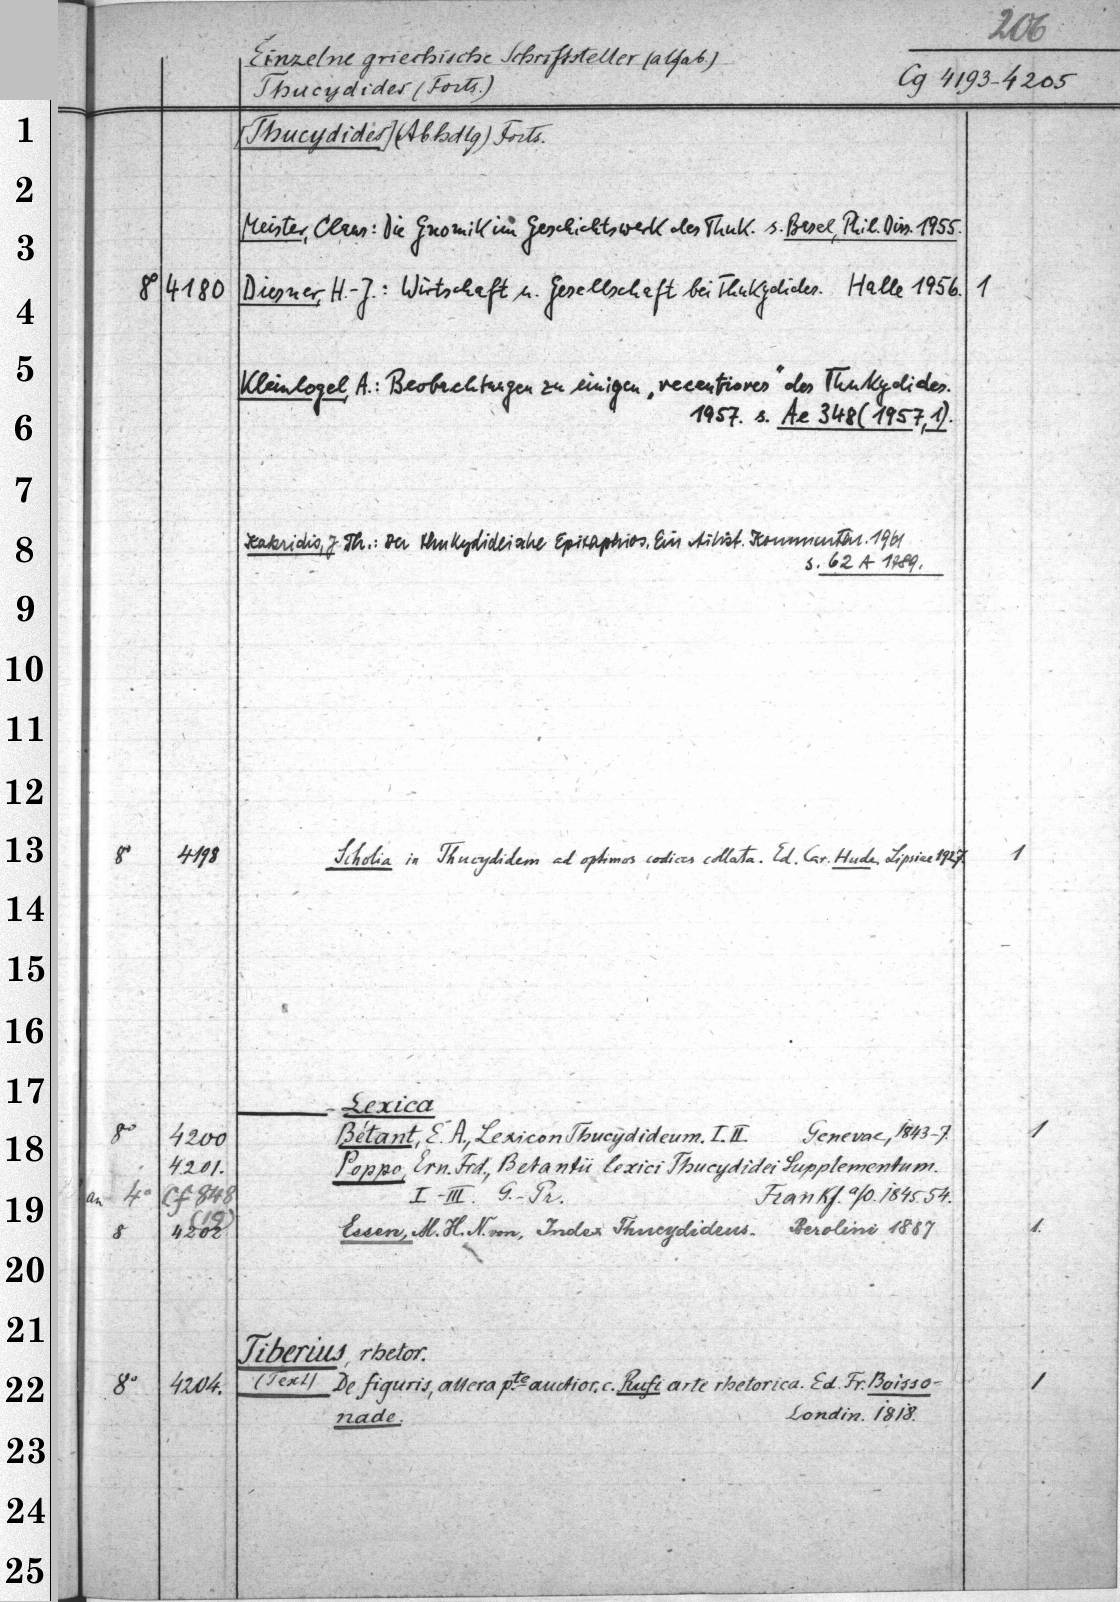 206
Einzelne griechische Schriftsteller (alfab.)
Thucydides (Forts.)
Cg 4193-4205
1
[Thucydides] (Abhdlg) Forts.
2
Meister, Claus: Die Gnomik im Geschichtswerk des Thuk. s. Basel, Phil. Diss. 1955.
3
8° 4180 Diesner, H.-J.: Wirtschaft u. Gesellschaft bei Thukydides. Halle 1956. 1
4
5
Kleinlogel, A.: Beobachtungen zu einigen „recentiores" des Thukydides.
1957. s. Ae 348 (1957,1).
6
7
Kakridis, J. Th.: Der thukydideische Epitaphios. Ein stilist. Kommentar. 1961
8
s. 62 A 1989.
9
10
11
12
13
8° 4198 Scholia in Thucydidem ad optimos codices collata. Ed. Car. Hude. Lipsiae 1927. 1
14
15
16
17
- Lexica
18
8° 4200 Bétant, E. A., Lexicon Thucydideum. I. II Genevae, 1843-7. 1
4201. Poppo, Ern. Frd., Betantii lexici Thucydidei Supplementum.
19
an 4° Cf 848 (19) I-III. G.-Pr. Frankf. a/O. 1845.54.
8 4202 Essen, M. H. N. von, Index Thucydideus. Berolini 1887 1.
20
21
Tiberius, rhetor.
22
8° 4204. (Text) De figuris, altera pte auctior, c. Rufi arte rhetorica. Ed. Fr. Boisso- 1
nade. Londin. 1818.
23
24
25